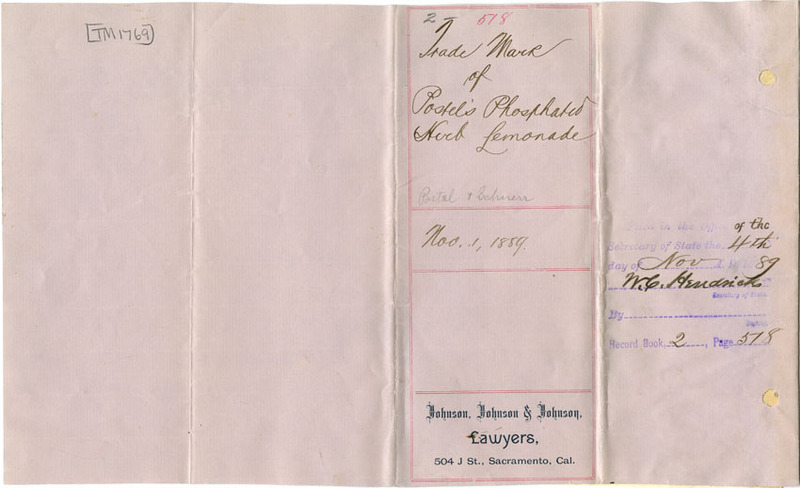 [TM1769]
2 - 518
Trade Mark
of
Postel's Phosphated
Herb Lemonade
Postel & Schnerr
Nov. 1, 1889.
Johnson, Johnson & Johnson,
Lawyers,
504 J St., Sacramento, Cal.
Filed in the Office of the
Secretary of State the 4th
day of Nov A.D. 1889
W.C. Hendricks
Secretary of State
By
Deputy
Record Book, 2, Page 518